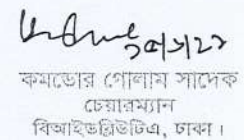 ২০/১/২২
কমডোর গোলাম সাদেক
চেয়ারম্যান
বিআইডব্লিউটিএ, ঢাকা।